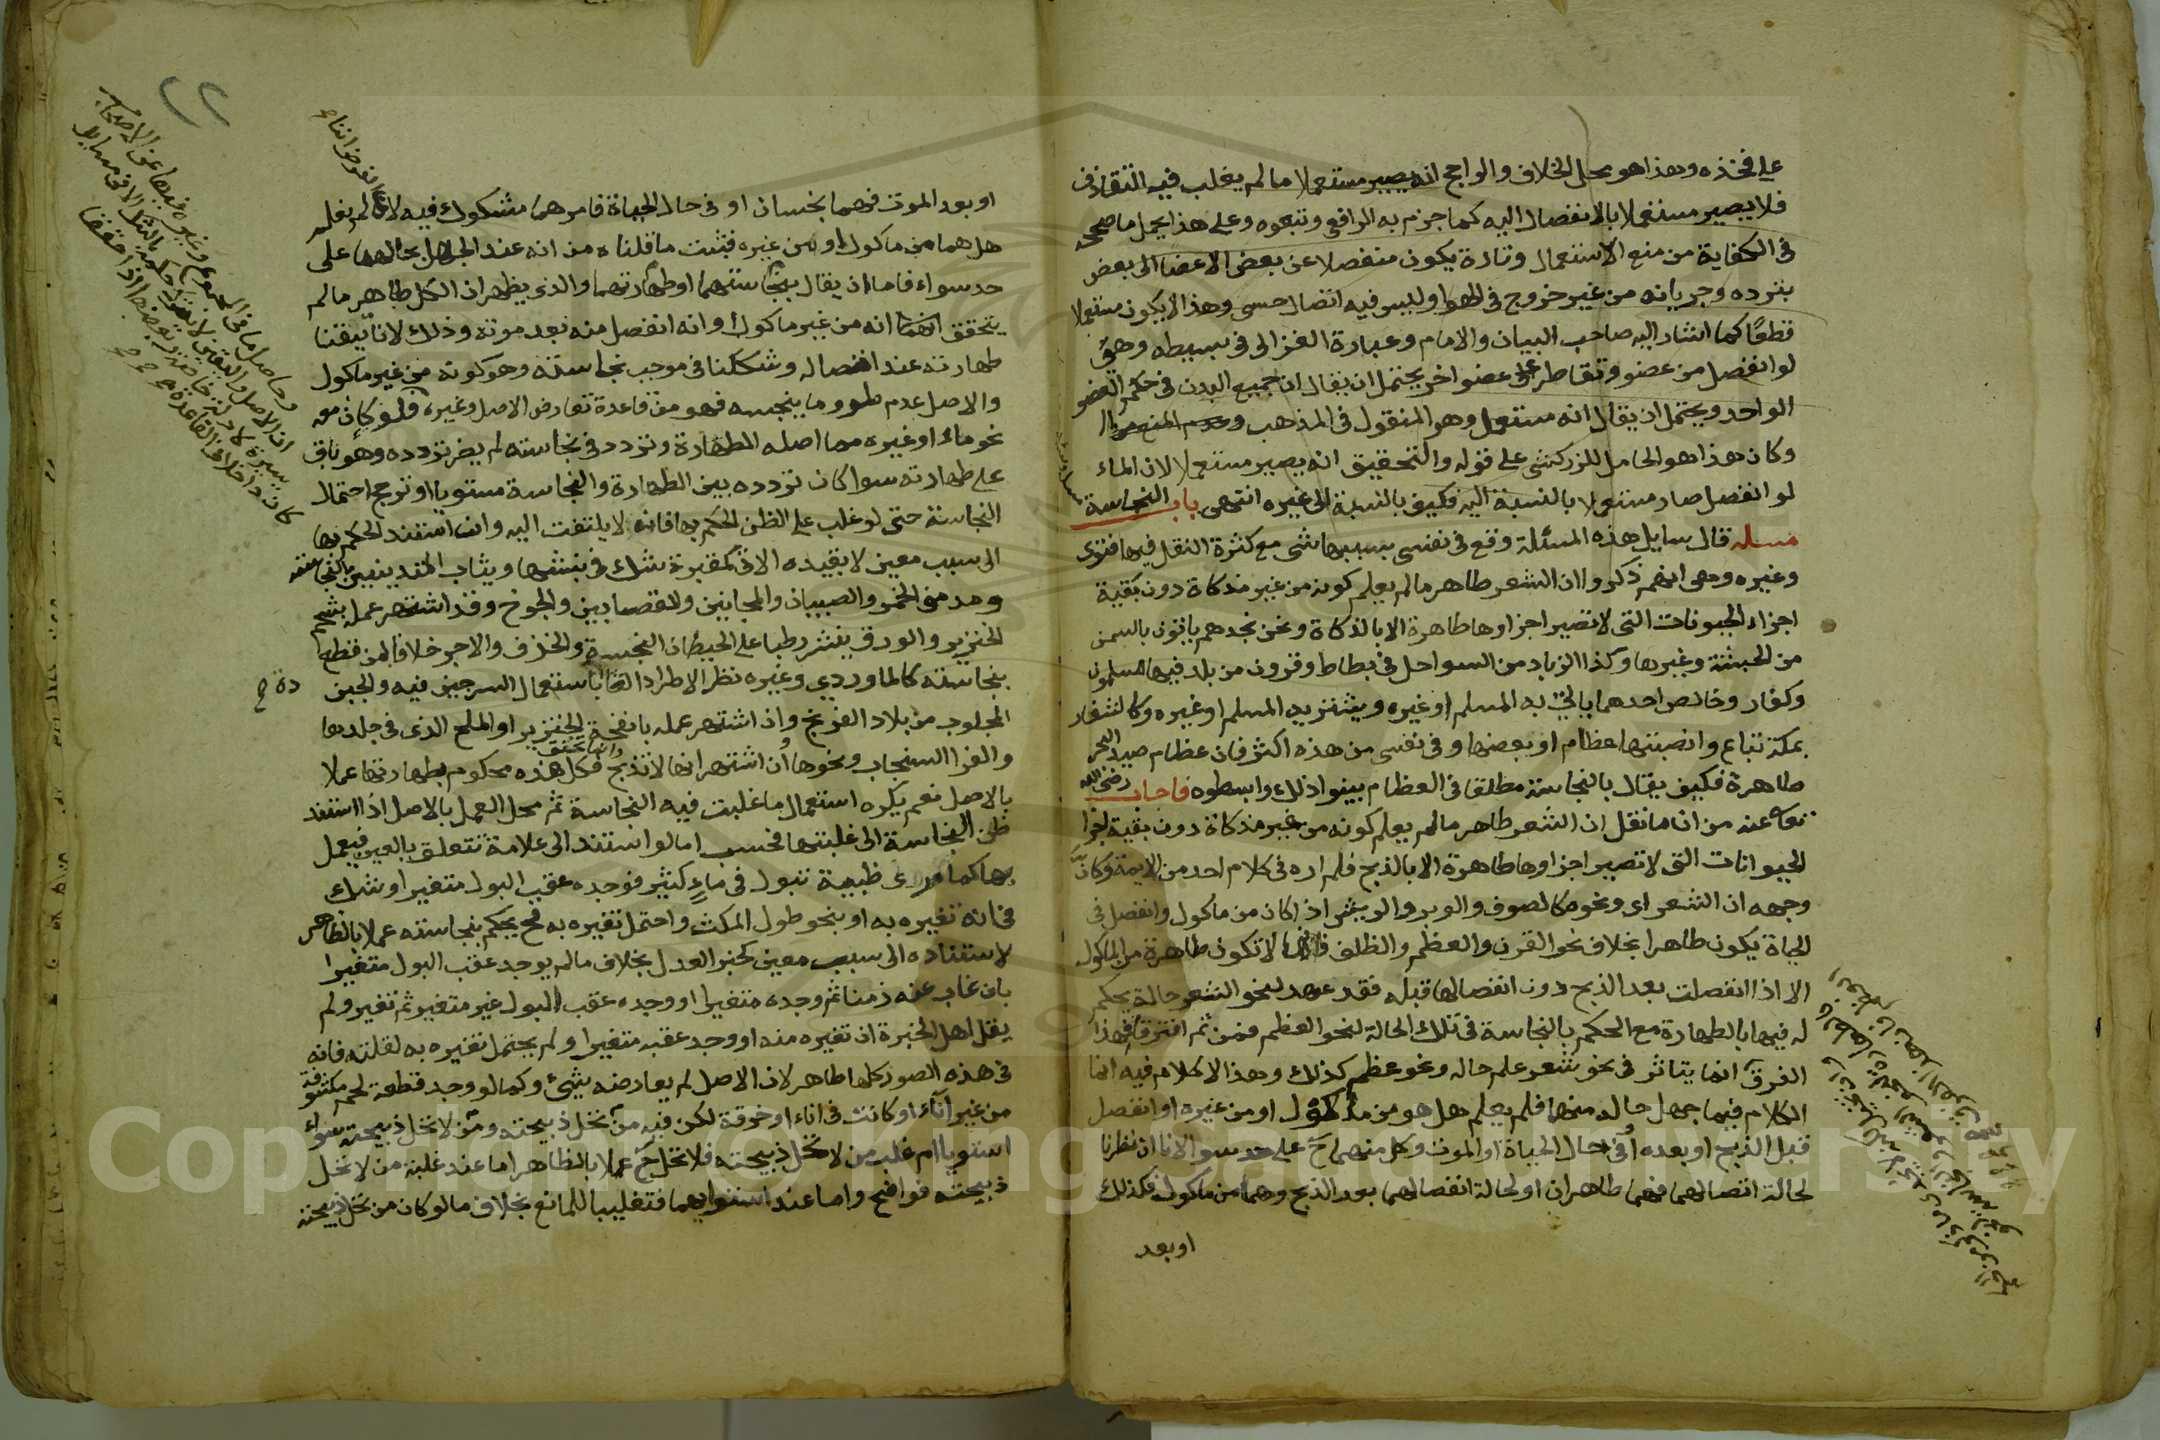 على فخذه وهذا هو محل الخلاف والراجح انه يصير مستعملا ما لم يغلب فيه التقاذف
فلا يصير مستعملا بالانفصال اليه كما جزم به الرافعي وتبعوه وعلى هذا يحمل ما صححه
في الكفاية من منع الاستعمال وتارة يكون منفصلا عن بعض الاعضا الى بعض
بترده وجريانه من غير خروج في الهوا وليس فيه انفصال حسي وهذا لا يكون مستعملا
قطعا كما اشار اليه صاحب البيان والامام وعبارة الغزالى في بسيطه وهي
لو انفصل من عضو وتقاطر على عضو اخر يحتمل ان يقال ان جميع البدن في حكم العضو
الواحد ويحتمل ان يقال انه مستعمل وهو المنقول في المذهب
وكان هذا هو الحامل للزركشى على قوله والتحقيق انه يصير مستعملا لان الماء
لو انفصل صار مستعملا بالنسبة اليه فكيف بالنسبة الى غيره انتهى باب النجاسة
مسله قال سايل هذه المسئلة وقع في نفسى بسببها شى مع كثرة النقل فيها فنووى
وغيره وهى انهم ذكروا ان الشعر طاهر ما لم يعلم كونه من غير مذكاة دون بقية
اجزاء الحيونات التى لا تصير اجزاوها طاهرة الا بالذكاة ونحن نجدهم ياتون بالسمن
من الحبشة وغيرها وكذا الزباد من السواحل في بطاط وقرون من بلد فيها مسلمون
وكفار وخالص احدهما ياتى به المسلم او غيره ويشتريه المسلم او غيره وكالشفار
بمكة تباع وانصبتها عظام او بعضها وفى نفسى من هذه اكثر فان عظام صيد البحر
طاهرة فكيف يقال بالنجاسة مطلقا في العظام بينوا ذلك وابسطوه فاجاب رضى الله
تعالى عنه من ان ما نقل ان الشعر طاهر ما لم يعلم كونه من غير مذكاة دون بقية اجزا
الحيوانات التى لا تصير اجزاوها طاهرة الا بالذبح فلم اره في كلام احد من الايمة وكان
وجهه ان الشعر اى ونحوه كالصوف والوبر والريش اذا كان من ماكول وانفصل في
الحياة يكون طاهرا بخلاف نحو القرن والعظم والظلف فانها لا تكون طاهرة من الماكول
الا اذا انفصلت بعد الذبح دون انفصالها قبله فقد عهد لنحو الشعر حالة يحكم
له فيها بالطهارة مع الحكم بالنجاسة في تلك الحالة لنحو العظم فمن ثم افترقا فهذا
الفرق انما يتاثر في نحو شعر علم حاله ونحو عظم كذلك وهذا لا كلام فيه انما
الكلام فيما جهل حاله منها فلم يعلم هل هو من ماكول او من غيره او انفصل
قبل الذبح او بعده او في حال الحياة او الموت وكل منهما ح على حد سوا لانا ان نظرنا
لحالة اتصالهما فهما طاهران او لحالة انفصالهما بعد الذبح وهما من ماكول فكذلك
او بعد
او بعد الموت فهما نجسان او في حال الحياة فامرهما مشكوك فيه لانا لم نعلم
هل هما من ماكول او من غيره فثبت ما قلناه من انه عند الجهل بحالهما على
حد سواء فاما ان يقال بنجاستهما او طهارتهما والذى يظهر ان الكل طاهر ما لم
يتحقق انه من غير ماكول وانه انفصل منه بعد موته وذلك لانا تيقنا
طهارته عند اتصاله وشككنا في موجب نجاسته وهو كونه من غير ماكول
والاصل عدم طرو ما ينجسه فهو من قاعدة تعارض الاصل وغيره فلو كان معه
نحو ماء او غيره مما اصله الطهارة وتردد في نجاسته لم يضر تردده وهو باق
على طهارته سوا كان تردده بين الطهارة والنجاسة مستويا او ترجح احتمال
النجاسة حتى لو غلب على الظن الحكم بها فانه لا يلتفت اليه وان استند الحكم بها
الى سبب معين لا بقيده الاتى كمقبرة شك في نبشها وثياب المتدينين بالنجاسة
ومدمنى الخمر والصبيان والمجانين والقصابين والجوخ وقد اشتهر عمله بشحم
الخنزير والورق ينشر رطبا على الحيطان النجسة والخزف والاجر خلافا لمن قطع
بنجاسته كالماوردي وغيره نظرا لاطراد العادة باستعمال السرجين فيه والجبن
المجلوب من بلاد الفرنج وان اشتهر عمله بانفحة الخنزير او الملح الذى في جلدها
والفرا السنجاب ونحوها وان اشتهر انها لا تذبح وانها تخنق فكل هذه محكوم بطهارتها عملا
بالاصل نعم يكره استعمال ما غلبت فيه النجاسة ثم محل العمل بالاصل اذا استند
ظن النجاسة الى غلبتها فحسب اما لو استند الى علامة تتعلق بالعين فيعمل
بها كما لو راى ظبية تبول في ماء كثير فوجده عقب البول متغيرا وشك
في ان تغيره به او بنحو طول المكث واحتمل تغيره به فح يحكم بنجاسته عملا بالظاهر
لاستناده الى سبب معين كخبر العدل بخلاف ما لم يوجد عقب البول متغيرا
بان غاب عنه زمنا ثم وجده متغيرا او وجده عقب البول غير متغير ثم تغير ولم
يقل اهل الخبرة ان تغيره منه او وجد عقبه متغيرا ولم يحتمل تغيره به لقلته فانه
في هذه الصور كلها طاهر لان الاصل لم يعارضه شىء وكما لو وجد قطعة لحم مكشوفة
من غير اناء او كانت في اناء او خرقة لكن فيه من تحل ذبيحته ومن لا تحل ذبيحته سواء
استويا ام غلب من لا تحل ذبيحته فلا تحل ح عملا بالظاهر اما عند غلبة من لا تحل
ذبيحته فواضح واما عند استوايهما فتغليبا للمانع بخلاف ما لو كان من تحل ذبيحته